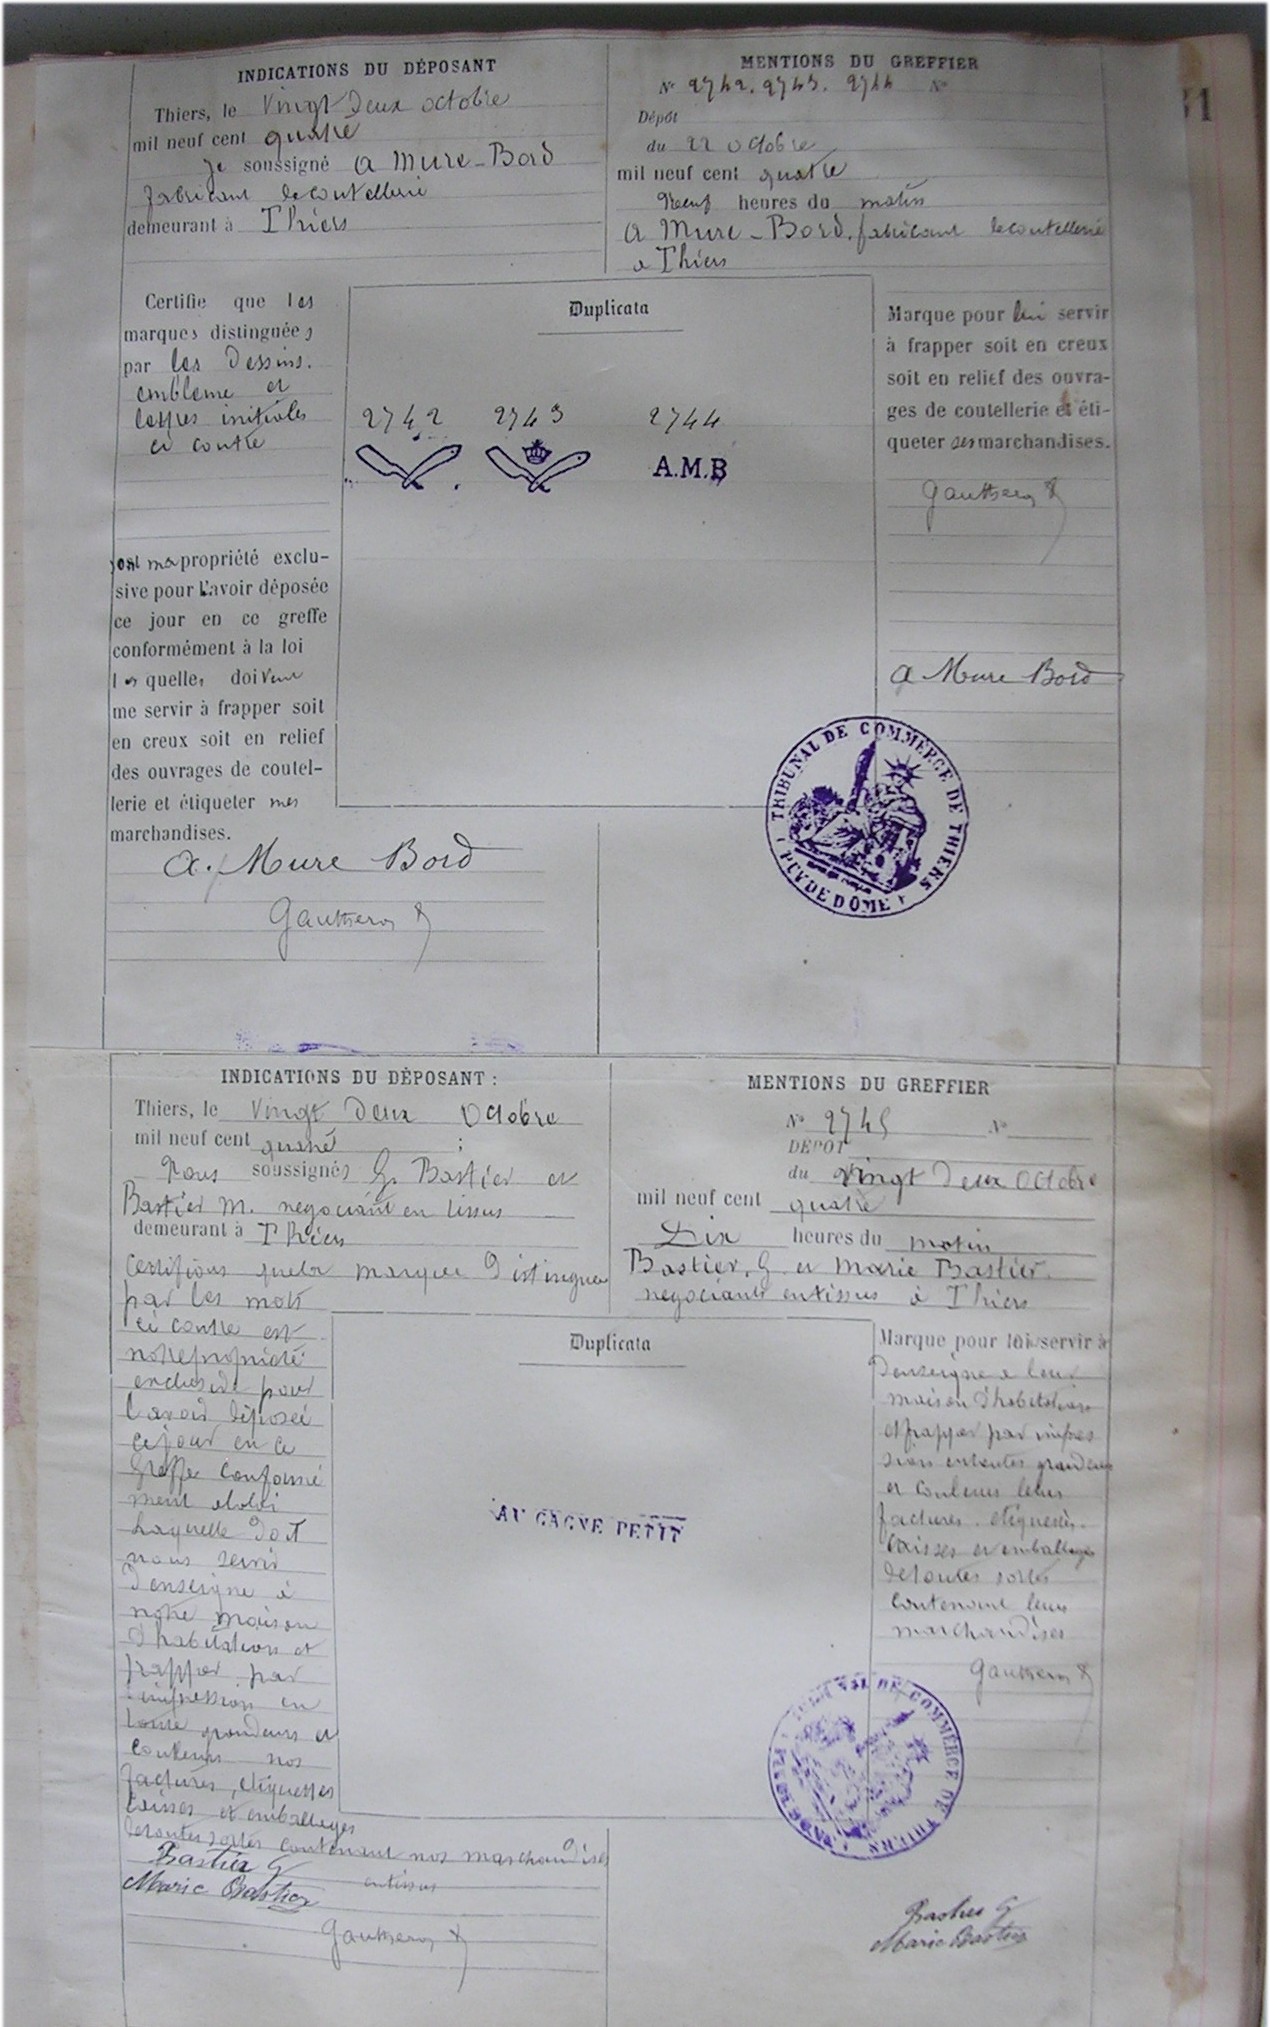 INDICATIONS DU DÉPOSANT
Thiers, le Vingt Deux octobre
mil neuf cent quatre
Je soussigné A Mure-Bord
fabricant de coutellerie
demeurant à Thiers
MENTIONS DU GREFFIER
N° 2742. 2743. 2744 N°
Dépôt
du 22 octobre
mil neuf cent quatre
Neuf heures du matin
A Mure-Bord, fabricant de coutellerie
a Thiers
31
Certifie que les
marques distinguées
par les Dessins.
embleme et
lettres initiales
ci contre
sont ma propriété exclu-
sive pour l'avoir déposée
ce jour en ce greffe
conformément à la loi
les quelles doivent
me servir à frapper soit
en creux soit en relief
des ouvrages de coutel-
lerie et étiqueter mes
marchandises.
A. Mure Bord
Gautheron
Duplicata
2742 2743 2744
A.M.B
Marque pour lui servir
à frapper soit en creux
soit en relief des ouvra-
ges de coutellerie et éti-
queter ses marchandises.
Gautheron
A Mure Bord
TRIBUNAL DE COMMERCE DE THIERS
PUY DE DÔME
INDICATIONS DU DÉPOSANT :
Thiers, le Vingt Deux Octobre
mil neuf cent quatre ;
Nous soussignés G. Bastier et
Bastier M. negociant en tissus
demeurant à Thiers
Certifions que la marque Distinguée
par les mots
ci contre est
notre propriété
exclusive pour
l'avoir déposée
ce jour en ce
Greffe conformé
ment a la loi
Laquelle doit
nous servir
D'enseigne à
notre maison
D'habitation et
frapper par
impression en
toute grandeurs et
couleurs nos
factures, étiquettes
Caisses et emballages
de toutes sortes contenant nos marchandises
en tissus
Bastier G
Marie Bastier
Gautheron
MENTIONS DU GREFFIER
N° 2745 N°
DÉPÔT
du Vingt Deux Octobre
mil neuf cent quatre
Dix heures du matin
Bastier. G. et Marie Bastier.
negociants en tissus à Thiers
Duplicata
AU GAGNE PETIT
Marque pour lui servir à
D'enseigne a leur
maison D'habitation
et frapper par impres
sion en toutes grandeurs
et couleurs leurs
factures. etiquettes.
Caisses et emballages
de toutes sortes
contenant leurs
marchandises
Gautheron
TRIBUNAL DE COMMERCE DE THIERS
Bastier G
Marie Bastier